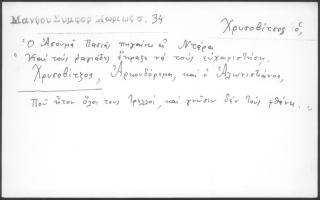 Μανθου Συμφορ Μωριως σ. 34
Χρυσοβίτσος ὁ,
"Ὁ Ἀσουμὰ Πασιᾶς πηγαίνει
"Καὶ τοὺς ραγιάδες ἔκραξε νὰ τοὺς εὐχαριστήσῃ.
Χρυσοβίτζος, Ἀρκουδόρεμα, καὶ ὁ Ἀλωνιστιάνος,
Ποῦ ἦτον ὅλοι τους τρελλοὶ, καὶ γνῶσιν δὲν τοὺς φθάνει. "